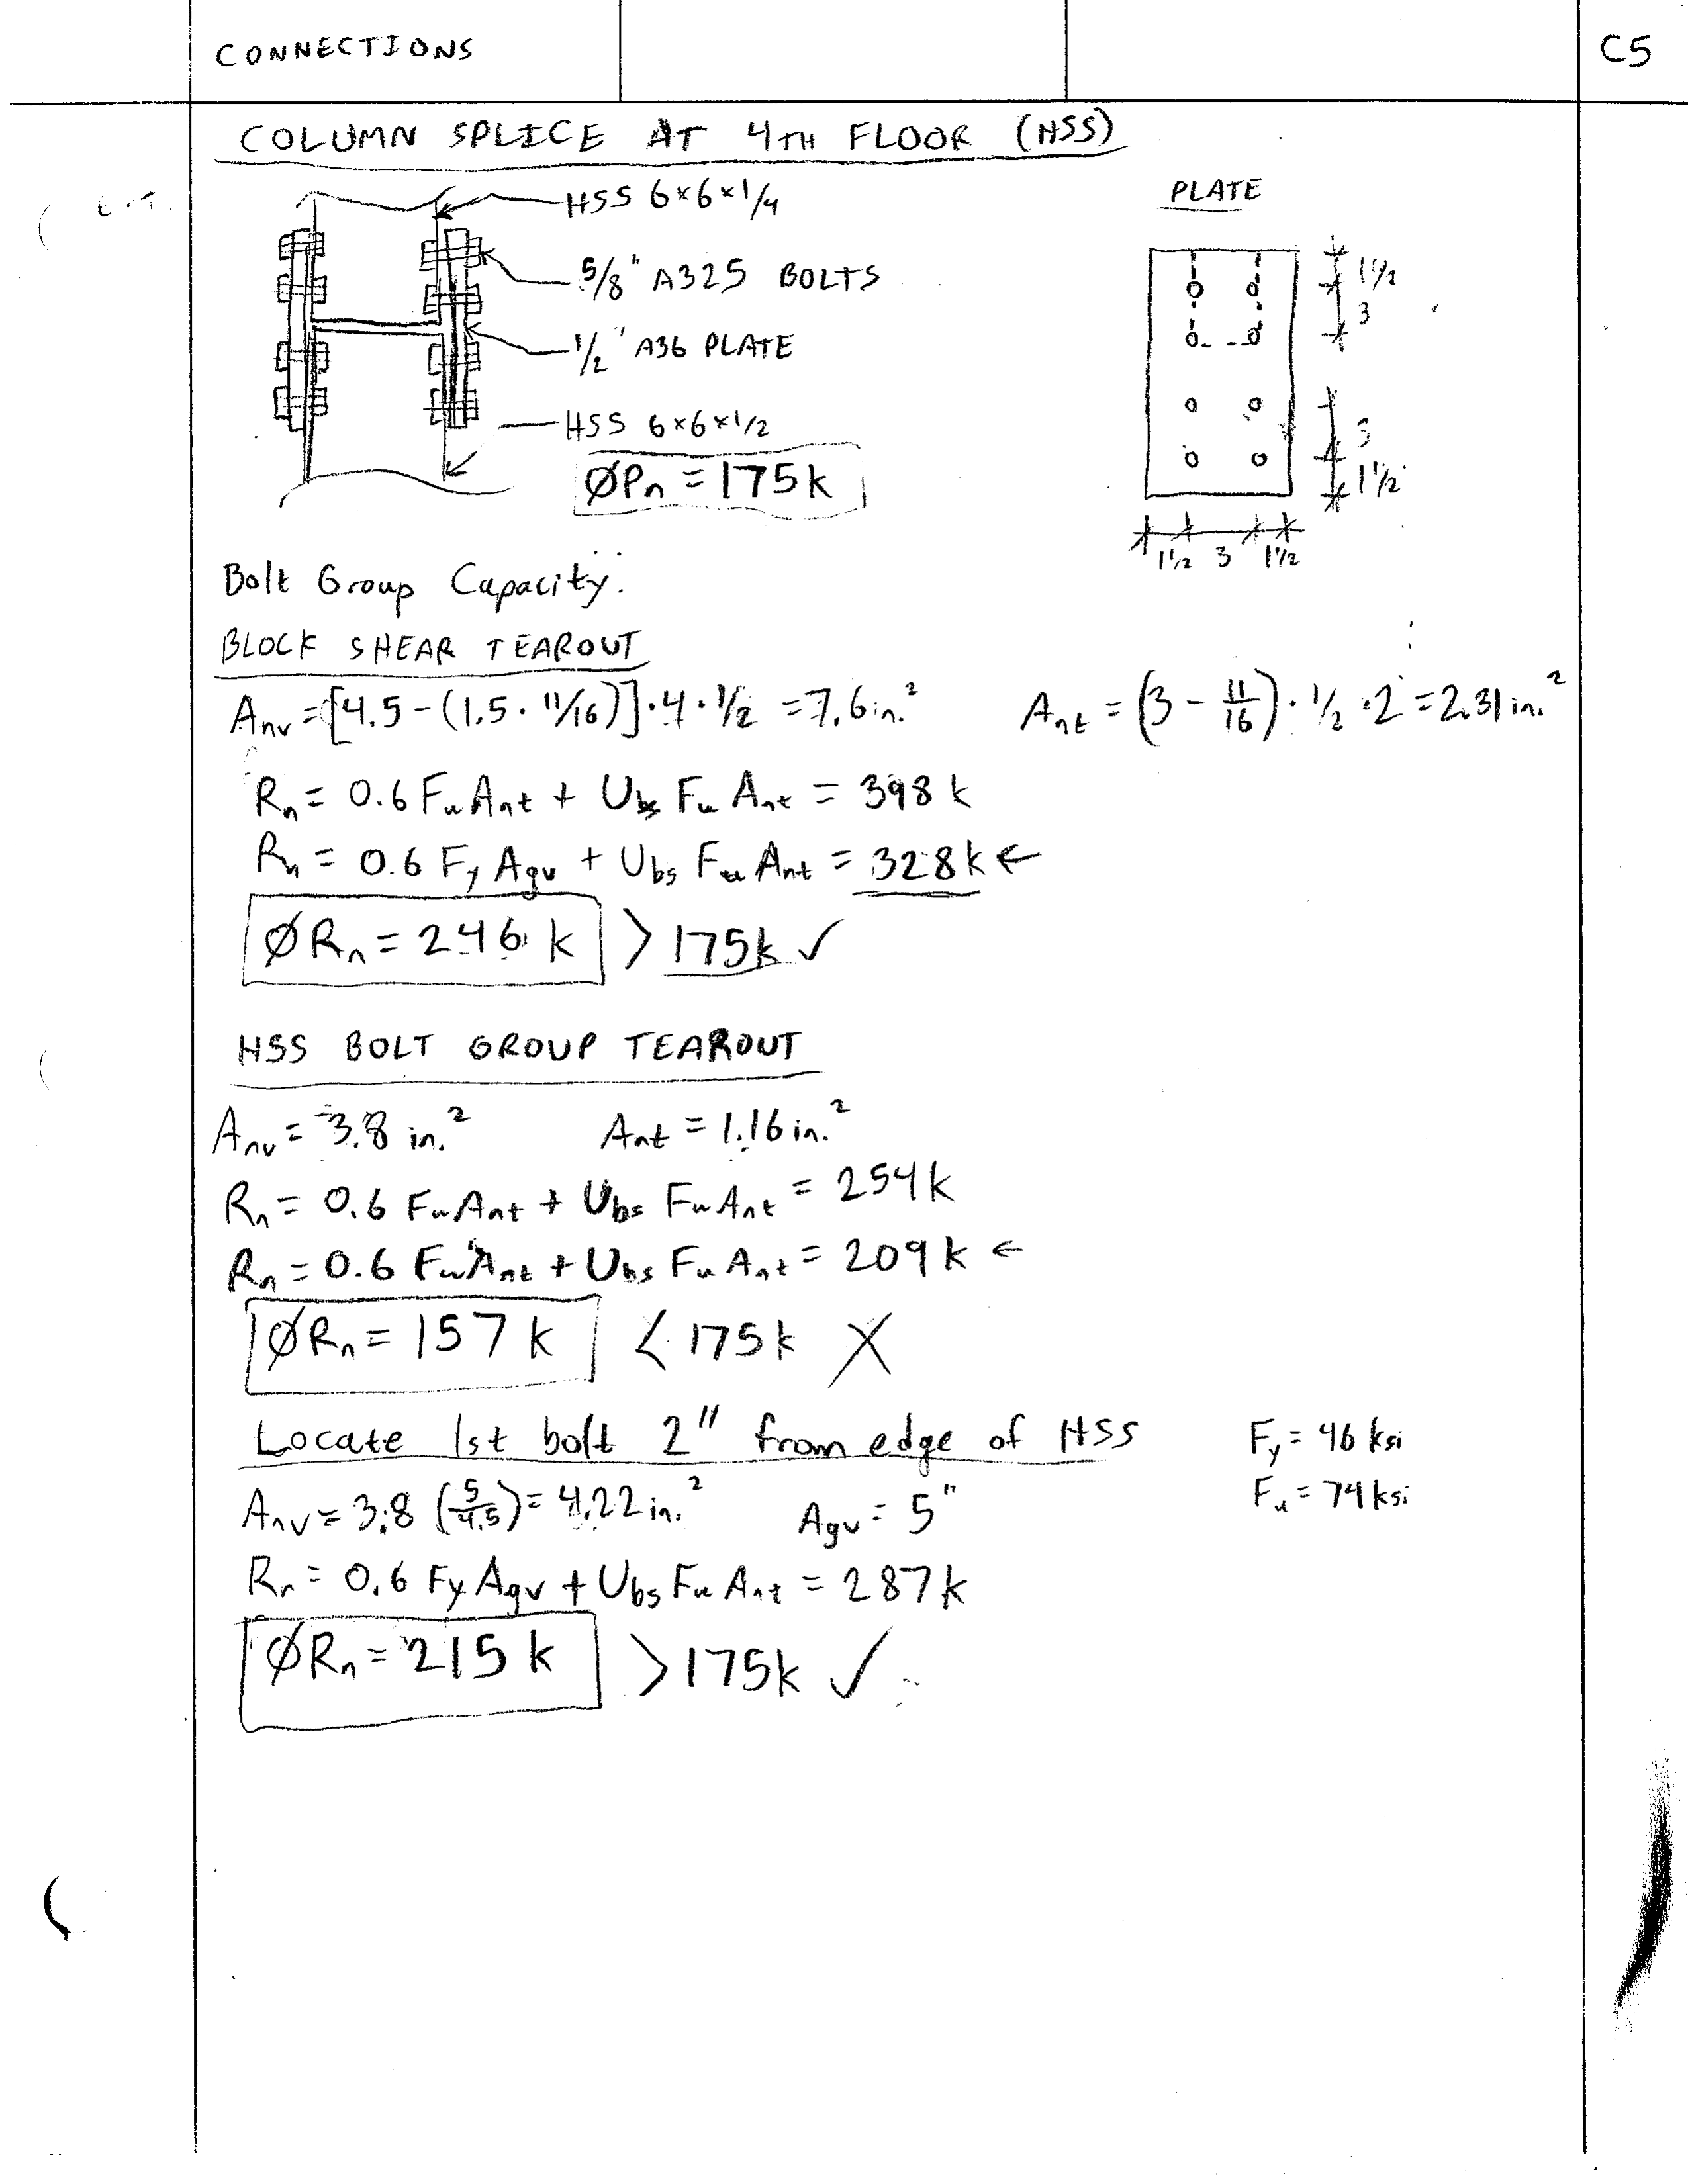 CONNECTIONS
C5
COLUMN SPLICE AT 4TH FLOOR (HSS)
HSS 6×6×1/4
5/8" A325 BOLTS
1/2" A36 PLATE
HSS 6×6×1/2
ØPn = 175k
PLATE
1 1/2
3
3
1 1/2
1 1/2 3 1 1/2
Bolt Group Capacity:
BLOCK SHEAR TEAROUT
Anv = [4.5 - (1.5 · 11/16)] · 4 · 1/2 = 7.6 in.² Ant = (3 - 11/16) · 1/2 · 2 = 2.31 in.²
Rn = 0.6 Fu Ant + Ubs Fu Ant = 398 k
Rn = 0.6 Fy Agv + Ubs Fu Ant = 328k ←
ØRn = 246 k > 175k ✓
HSS BOLT GROUP TEAROUT
Anv = 3.8 in.² Ant = 1.16 in.²
Rn = 0.6 Fu Ant + Ubs Fu Ant = 254k
Rn = 0.6 Fu Ant + Ubs Fu Ant = 209k ←
ØRn = 157 k < 175k X
Locate 1st bolt 2" from edge of HSS
Fy = 46 ksi
Fu = 74 ksi
Anv = 3.8 (5/4.5) = 4.22 in.² Agv = 5"
Rn = 0.6 Fy Agv + Ubs Fu Ant = 287k
ØRn = 215 k > 175k ✓